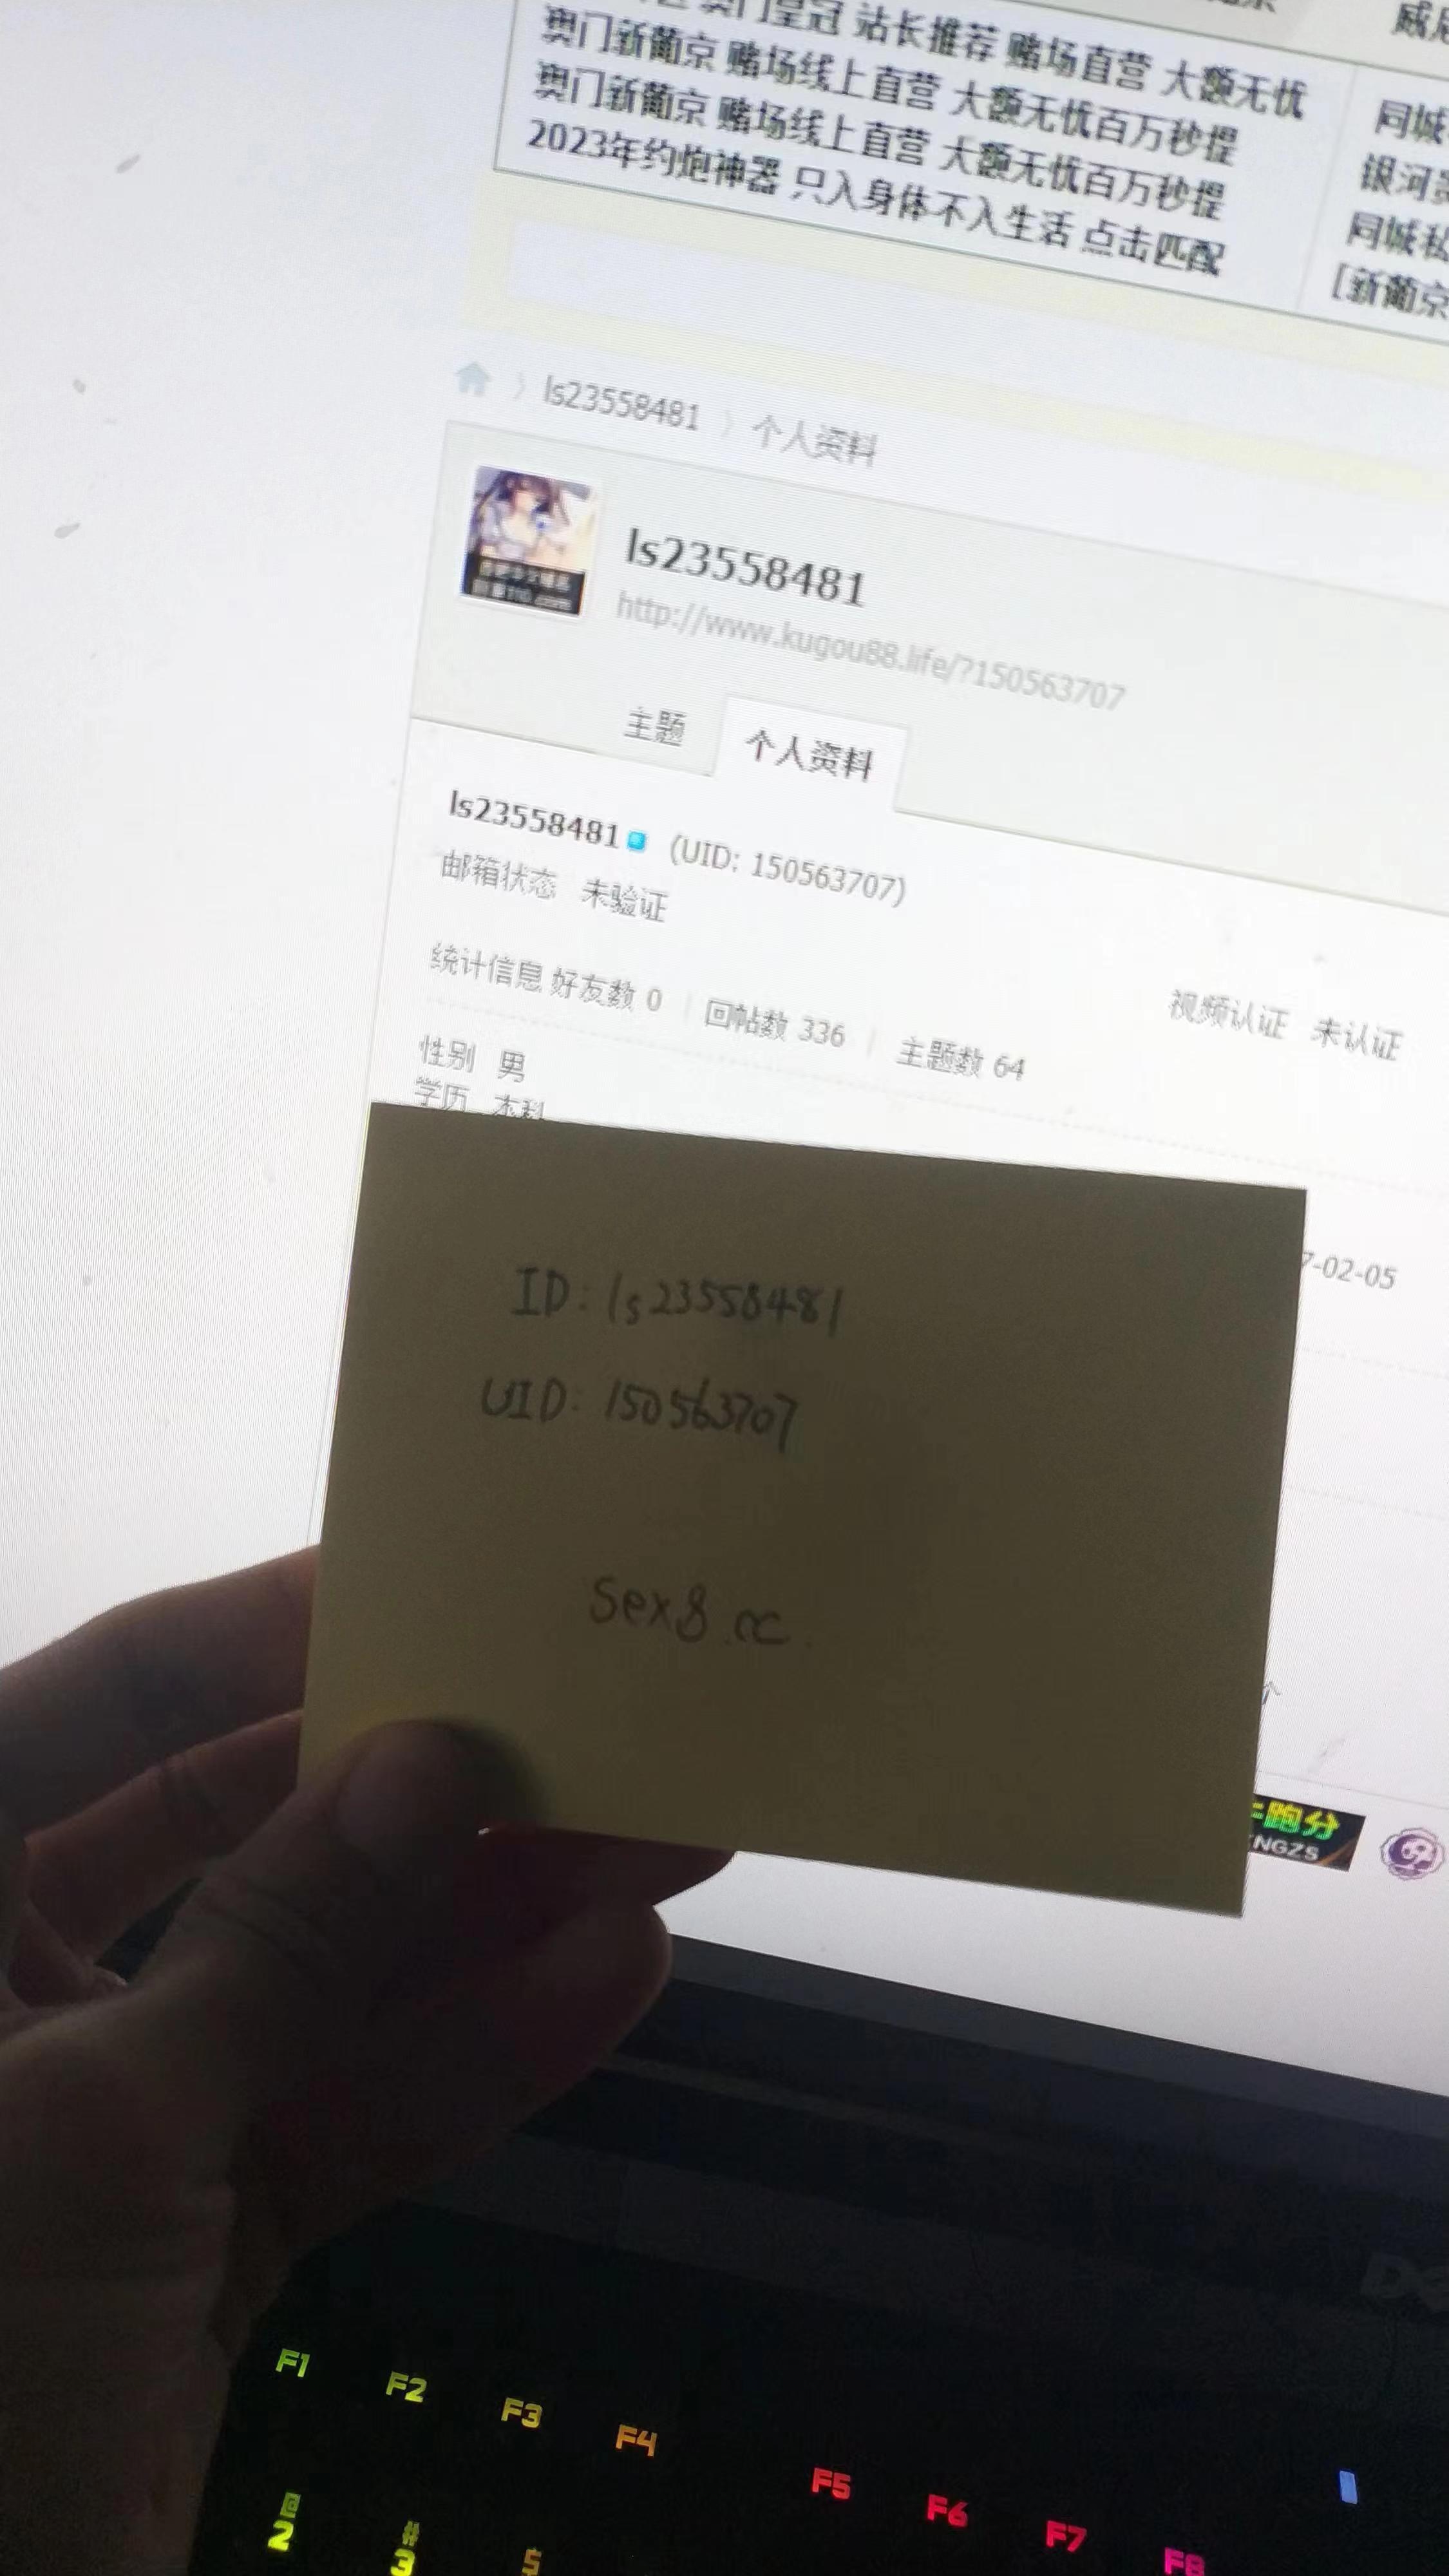 皇冠 站长推荐 赌场直营 大额无忧
澳门新葡京 赌场线上直营 大额无忧百万秒提
澳门新葡京 赌场线上直营 大额无忧百万秒提
2023年约炮神器 只入身体不入生活 点击匹配
同城
银河
同城私
[新葡京
ls23558481 〉 个人资料
ls23558481
http://www.kugou88.life/?150563707
主题 个人资料
ls23558481 (UID: 150563707)
邮箱状态 未验证
视频认证 未认证
统计信息 好友数 0 | 回帖数 336 | 主题数 64
性别 男
学历 本科
7-02-05
ID: ls23558481
UID: 150563707
Sex8.cc
个
跑分
NGZS
F1 F2 F3 F4 F5 F6 F7 F8
@ # $
2 3